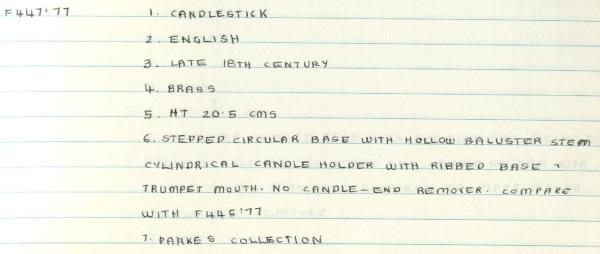 F447'77 1. CANDLESTICK
2. ENGLISH
3. LATE 18TH CENTURY
4. BRASS
5. HT 20.5 CMS
6. STEPPED CIRCULAR BASE WITH HOLLOW BALUSTER STEM
CYLINDRICAL CANDLE HOLDER WITH RIBBED BASE +
TRUMPET MOUTH. NO CANDLE-END REMOVER. COMPARE
WITH F446'77
7. PARKES COLLECTION